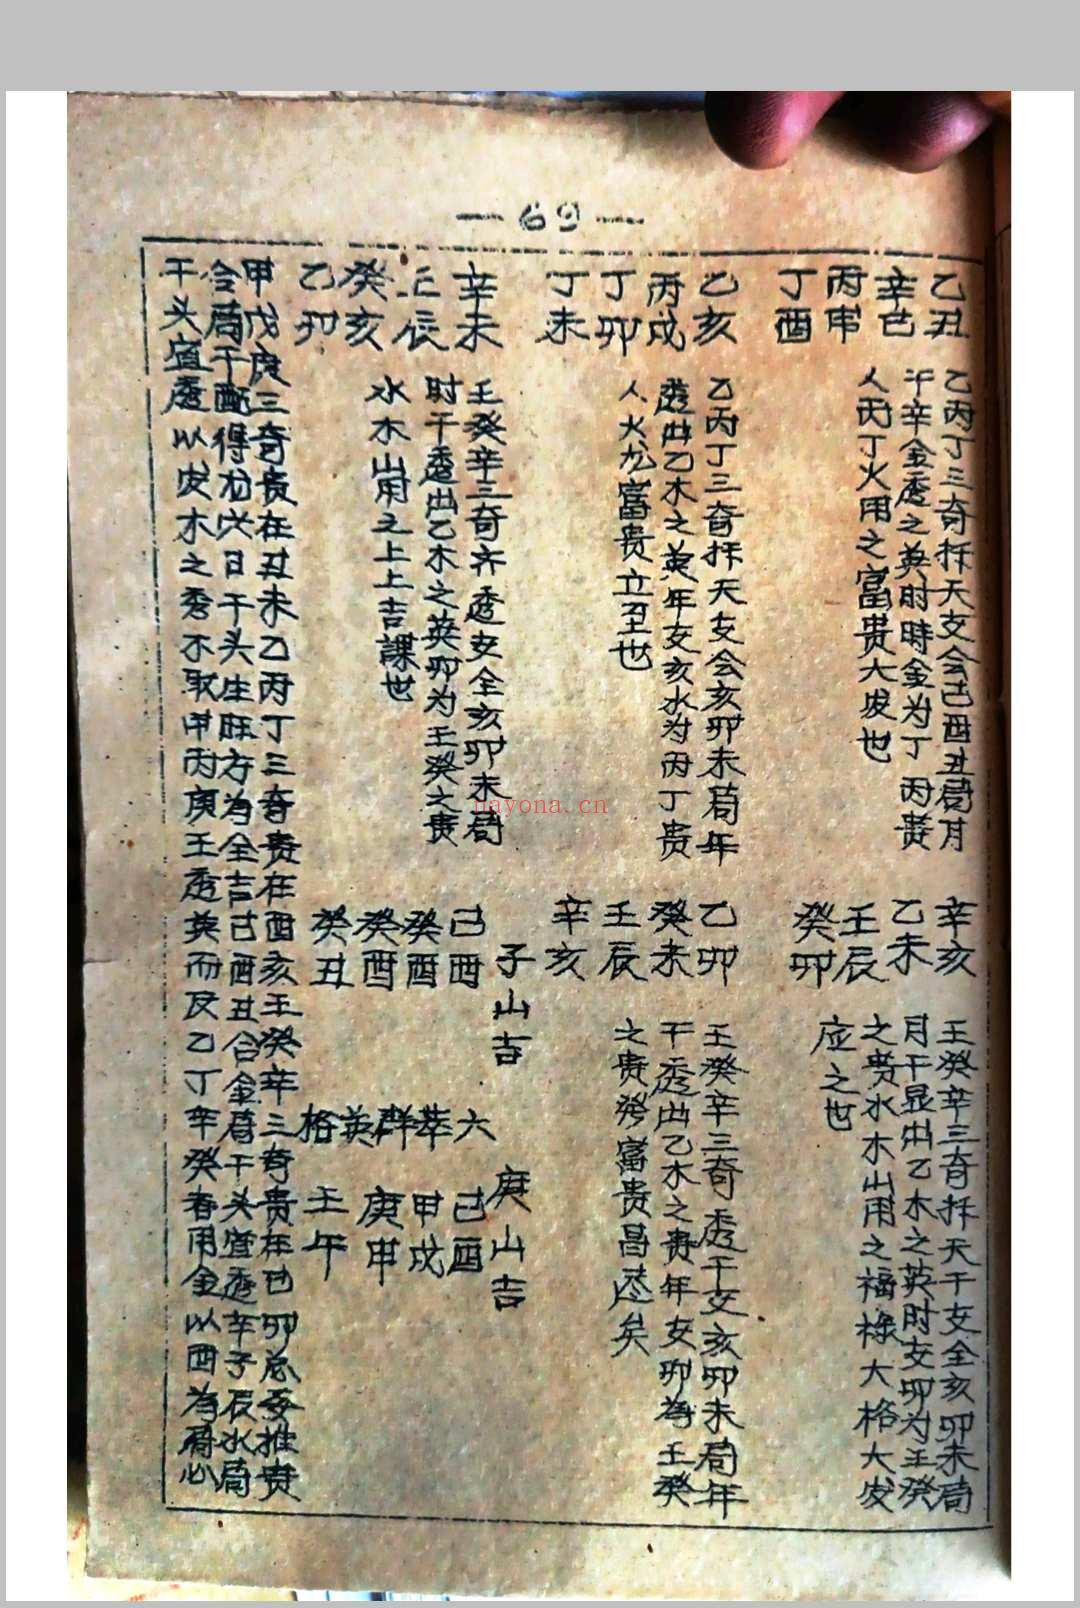 —69—
乙丑
辛巳
丙申
丁酉
乙丙丁三奇抓天支会己酉丑局月
干辛金透之英时時金为丁丙贵
人丙丁火用之富贵大发也
辛亥
乙未
壬辰
癸卯
壬癸辛三奇抓天干支全亥卯未局
月干显出乙木之英时支卯为壬癸
之贵水木山用之福禄大格大发
应之也
乙亥
丙戌
丁卯
丁未
乙丙丁三奇抓天支会亥卯未局年
透出乙木之英年支亥水为丙丁贵
人火龙富贵立至也
乙卯
癸未
壬辰
辛亥
壬癸辛三奇透干支亥卯未局年
干透出乙木之贵年支卯為壬癸
之贵癸富贵昌盛矣
辛未
壬辰
癸亥
乙卯
壬癸辛三奇齐透支全亥卯未局
时干透出乙木之英卯为壬癸之贵
水木山用之上上吉課也
子山吉
己酉
癸酉
癸酉
癸丑
六萃群英格
庚山吉
己酉
甲戌
庚申
壬午
甲戊庚三奇贵在丑未乙丙丁三奇贵在酉亥壬癸辛三奇贵在巳卯总要推贵
合局干配得龙六日干头生旺方為全吉己酉丑合金局干头宜透辛子辰水局
干头宜透以发木之秀不取甲丙庚壬透英而反乙丁辛癸春用金以酉為局必
nayona.cn